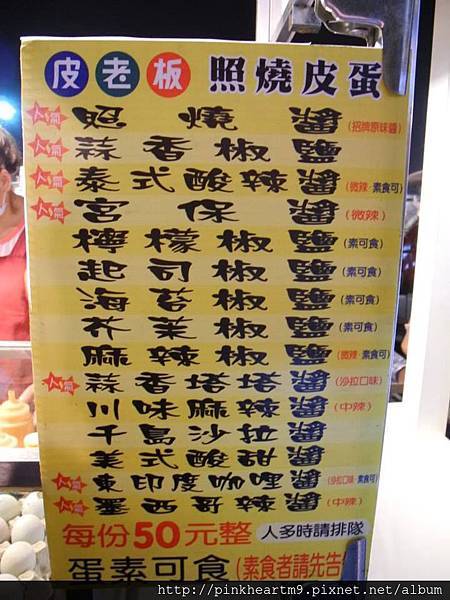 皮老板 照燒皮蛋
人氣 照燒醬 (招牌原味醬)
人氣 蒜香椒鹽
人氣 泰式酸辣醬 (微辣·素食可)
人氣 宮保醬 (微辣)
檸檬椒鹽 (素可食)
起司椒鹽 (素可食)
海苔椒鹽 (素可食)
芥茉椒鹽 (素可食)
麻辣椒鹽 (微辣·素可食)
人氣 蒜香塔塔醬 (沙拉口味)
川味麻辣醬 (中辣)
千島沙拉醬
美式酸甜醬
人氣 東印度咖哩醬 (沙拉口味·素食可)
人氣 墨西哥辣醬 (中辣)
每份50元整 人多時請排隊
蛋素可食(素食者請先告
http://pinkheartm9.pixnet.net/album